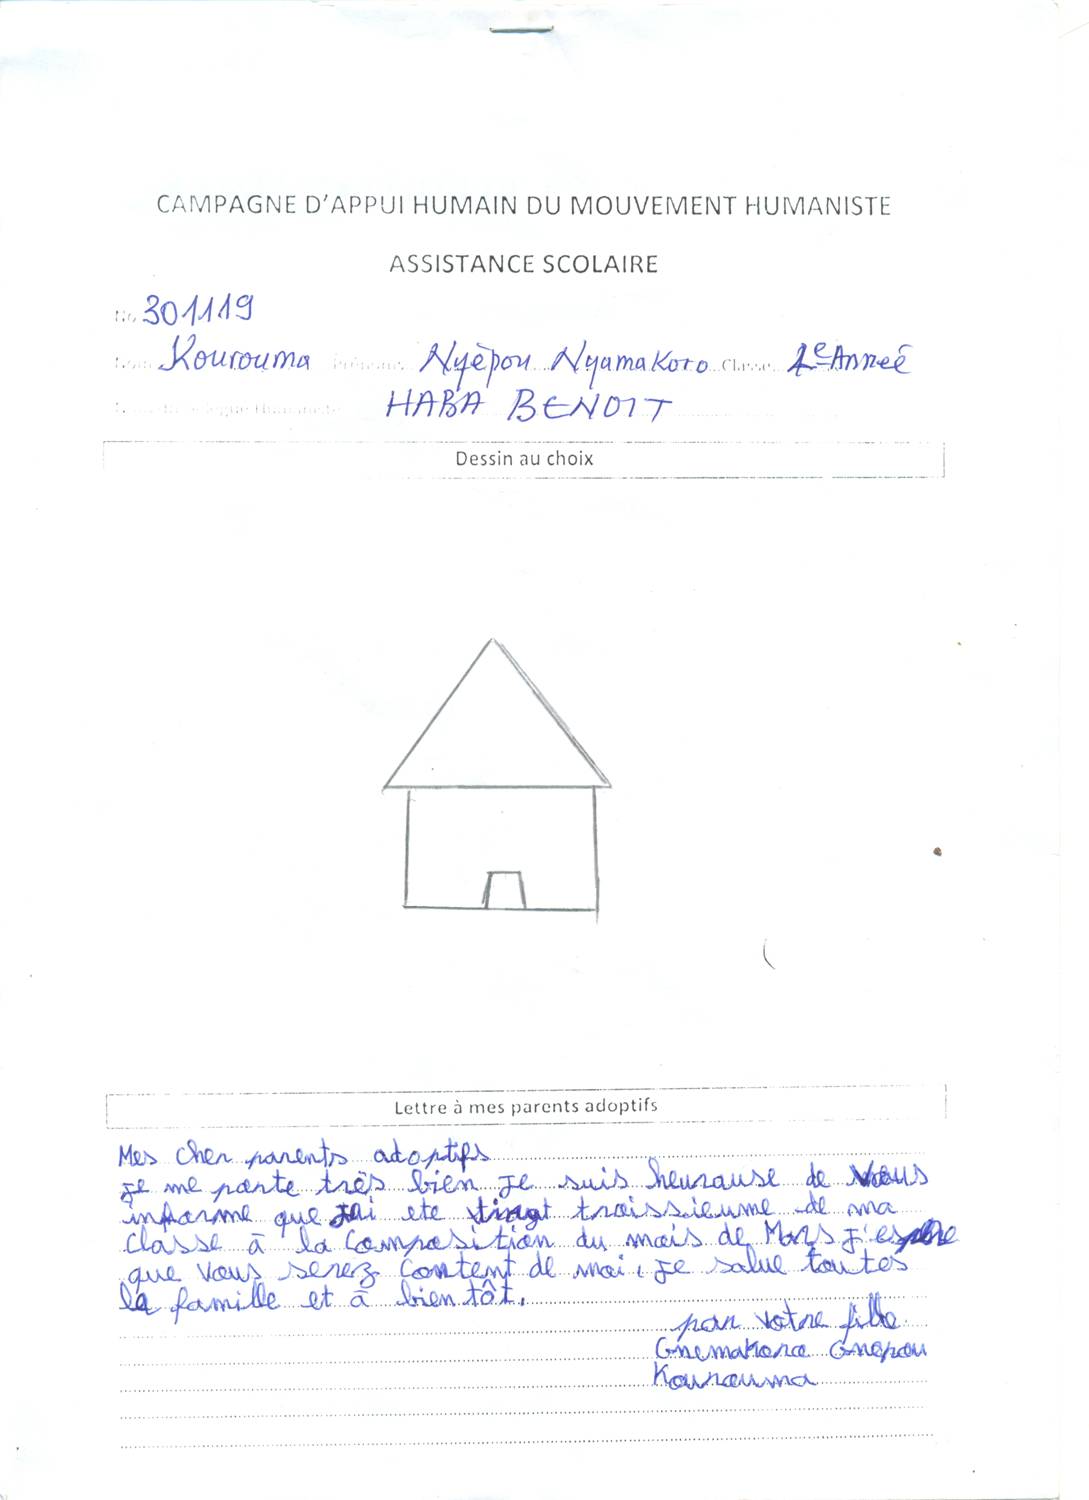 CAMPAGNE D'APPUI HUMAIN DU MOUVEMENT HUMANISTE
ASSISTANCE SCOLAIRE
No 301119
Nom Kourouma Prénoms Nyèpou Nyamakoro Classe 1e Anneé
HABA BENOIT
Dessin au choix
Lettre à mes parents adoptifs
Mes cher parents adoptifs
je me porte très bien je suis heurause de vous
informe que j'ai ete vingt troissieume de ma
classe à la composition du mois de Mars j'espere
que vous serez content de moi, je salue toutes
la famille et à bien tôt.
par votre fille
Gnemakoro Gnepou
Kourouma